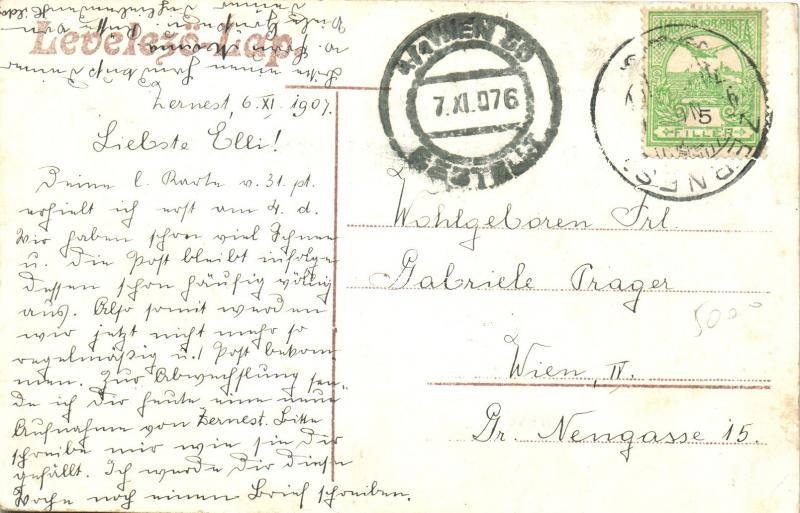 Levelező-Lap.
Zernest, 6 XI. 1907.
Liebste Elli!
Deine l. Karte v. 31. pt.
erhielt ich erst am 4. d.
Wir haben schon viel Schnee
u. die Post bleibt infolge
dessen schon häufig völlig
aus. Also somit werden
wir jetzt nicht mehr so
regelmäßig u. / Post bekom
men. Zur Abwechslung sen-
de ich Dir heute eine neue
Aufnahme von Zernest. Bitte
schreibe mir wie sie Dir
gefällt. Ich werde Dir diese
Woche noch einen Brief schreiben.
WIEN 50
7.XI.07 6
BESTELLT
MAGYAR KIR. POSTA
5
FILLÉR
Wohlgeboren Frl.
Gabriele Prager
Wien, IV.
Gr. Neugasse 15.
5000